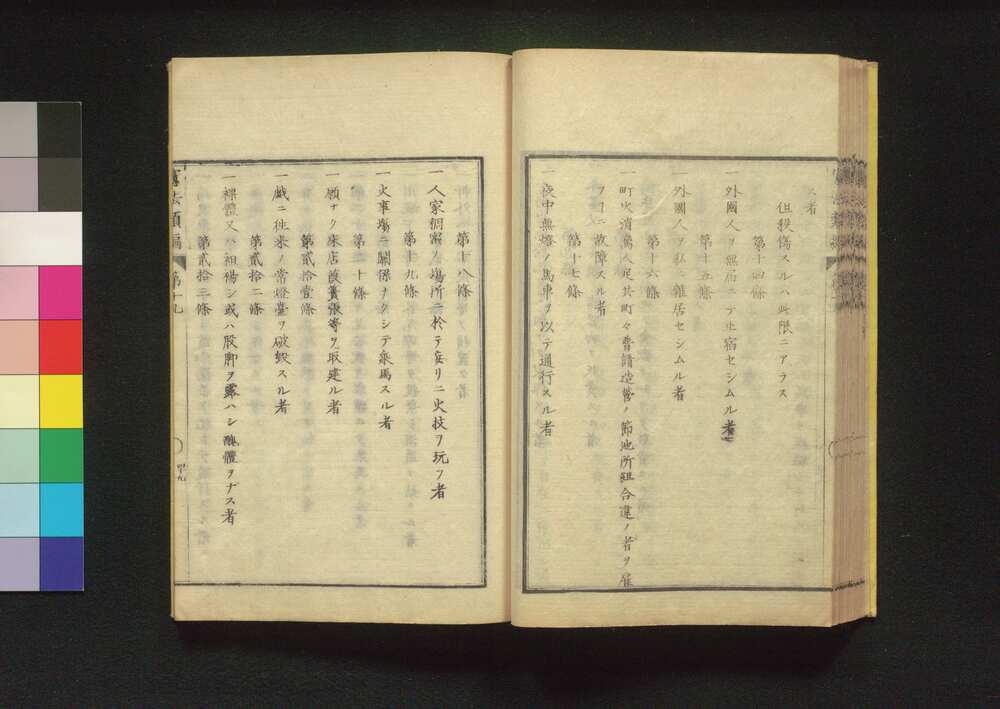 ス者
但投傷スルハ此限ニアラス
第十四條
一 外國人ヲ無届ニテ止宿セシムル者
第十五條
一 外國人ヲ私ニ雜居セシムル者
第十六條
一 町火消鳶人足其町々普請造營ノ節地所組合違ノ者ヲ雇
フコニ故障スル者
第十七條
一 夜中無燈ノ馬車ヲ以テ通行スル者
第十八條
一 人家稠密ノ場所ニ於テ妄リニ火技ヲ玩フ者
第十九條
一 火事場ニ關係ナクシテ乘馬スル者
第二十條
一 願ナク床店葭簀張等ヲ取建ル者
第貳拾壹條
一 戲ニ往來ノ常燈臺ヲ破毀スル者
第貳拾二條
一 裸體又ハ袒裼シ或ハ股脚ヲ露ハシ醜體ヲナス者
第貳拾三條
憲法類編 第十九